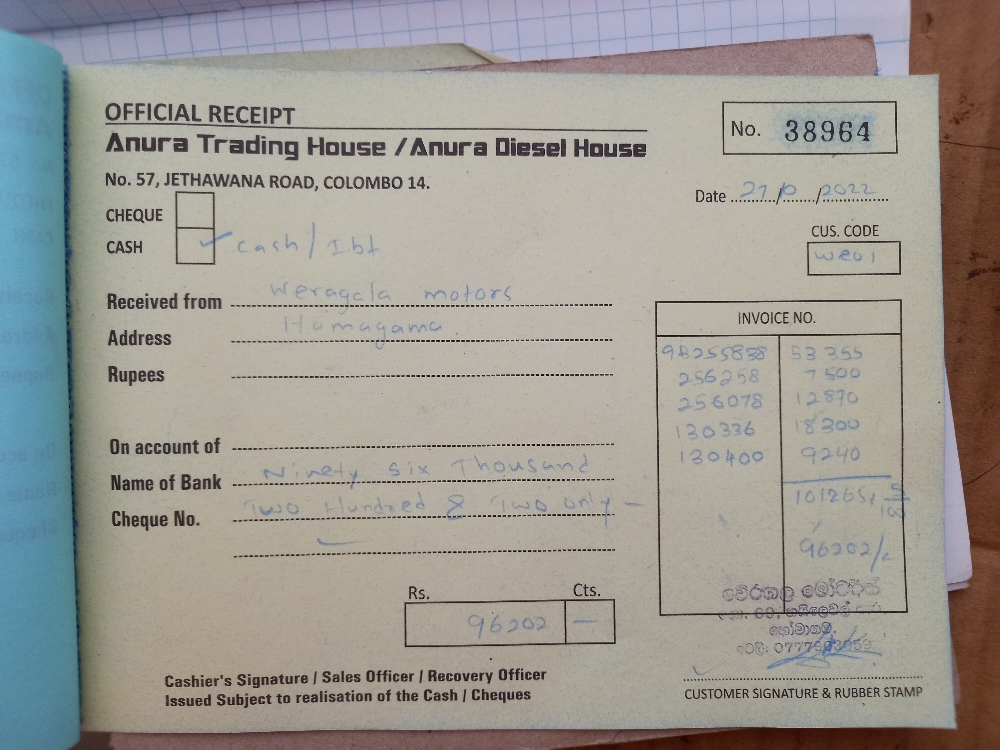 OFFICIAL RECEIPT
Anura Trading House / Anura Diesel House
No. 57, JETHAWANA ROAD, COLOMBO 14.
No. 38964
Date 27/0/2022
CHEQUE
CASH ✓ cash / Ibt
CUS. CODE
WE01
Received from Weragala motors
Address Hamagama
Rupees
On account of
Name of Bank Ninety six Thousand
Cheque No. Two Hundred & Two only —
INVOICE NO.
53 355
256258 7500
256078 12870
130336 18300
130400 9240
101265
96202/-
Rs. Cts.
96202 —
වේරගල මෝටර්ස්
හෝමාගම.
Cashier's Signature / Sales Officer / Recovery Officer
Issued Subject to realisation of the Cash / Cheques
CUSTOMER SIGNATURE & RUBBER STAMP